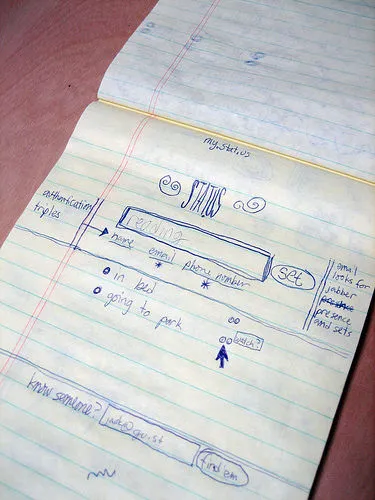 my.stat.us
STATUS
authentication
triples
reading
name email phone number
set
in bed
going to park
watch?
email
looks for
jabber
presence
presence
and sets
know someone?
jack@gu.st
find em